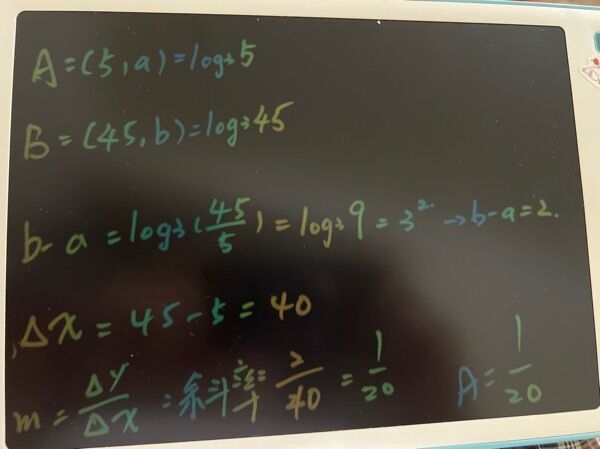 A=(5,a)=log₃5
B=(45,b)=log₃45
b-a=log₃(45/5)=log₃9=3²→b-a=2.
Δx=45-5=40
m=Δy/Δx=斜率2/40=1/20 A=1/20